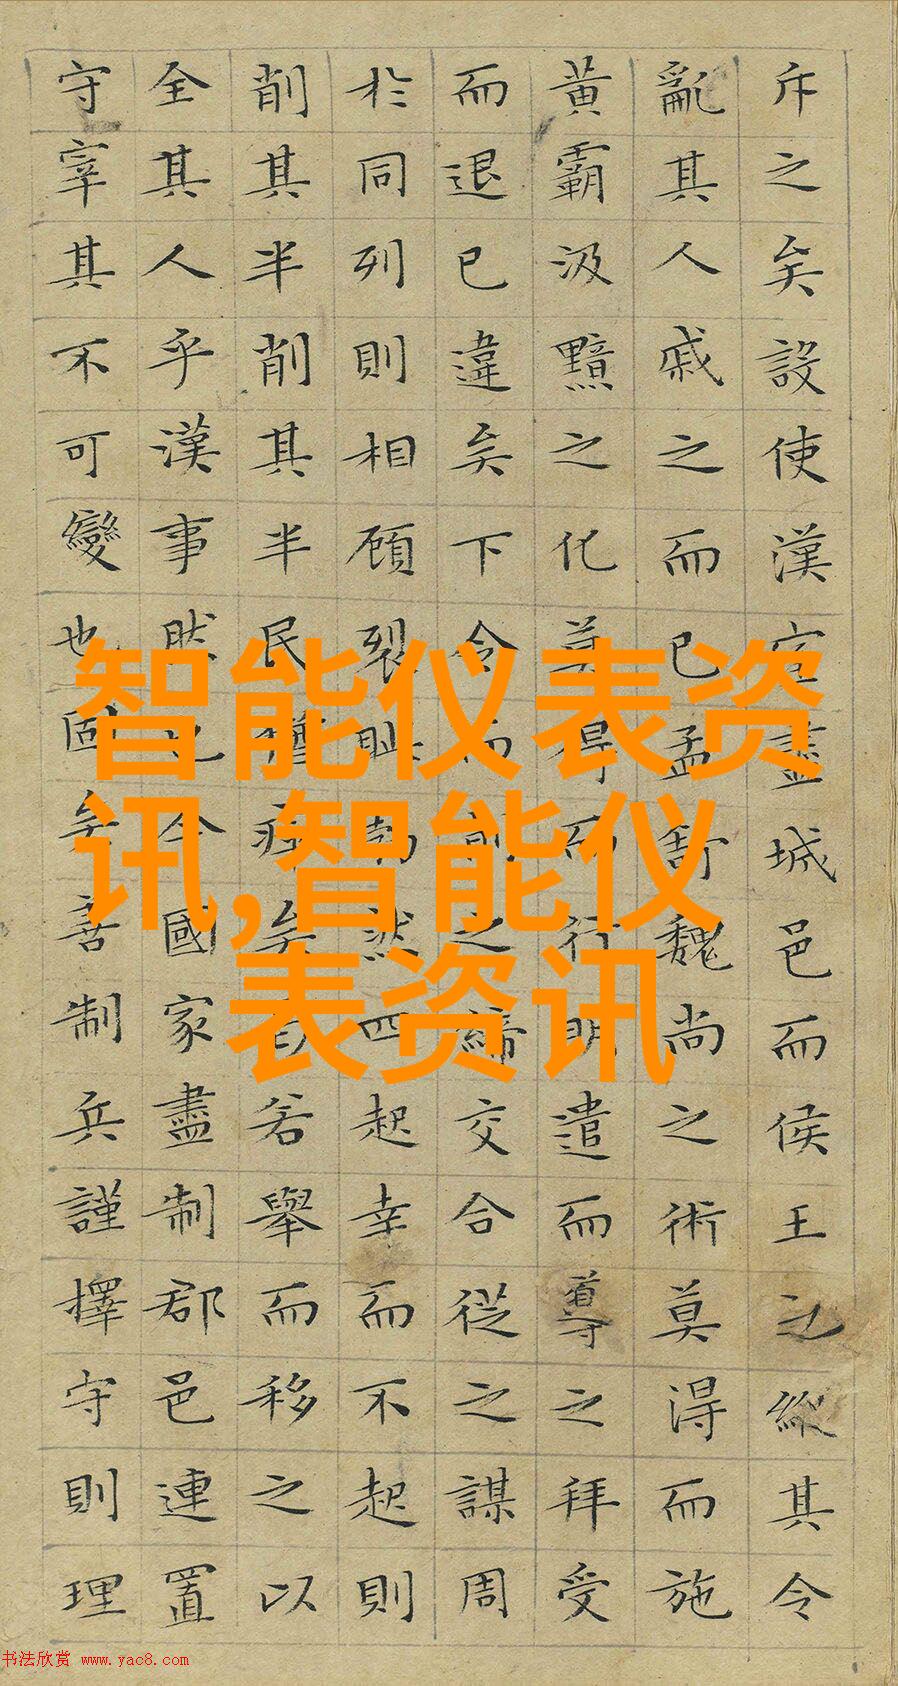 斥之矣設使漢室盡城邑而侯王之縱其令
亂其人戚之而已孟舒魏尚之術莫得而施
黃霸汲黯之化莫得而行明遣而導之拜受
而退已違矣下令而削之締交合從之謀周
於同列則相顧裂眥勃然四起幸而不起則
削其半削其半民猶瘁矣曷若舉而移之以
全其人乎漢事然也今國家盡制郡邑連置
守宰其不可變也固矣善制兵謹擇守則理
智能仪表资
讯,智能仪
表资讯
书法欣赏 www.yac8.com